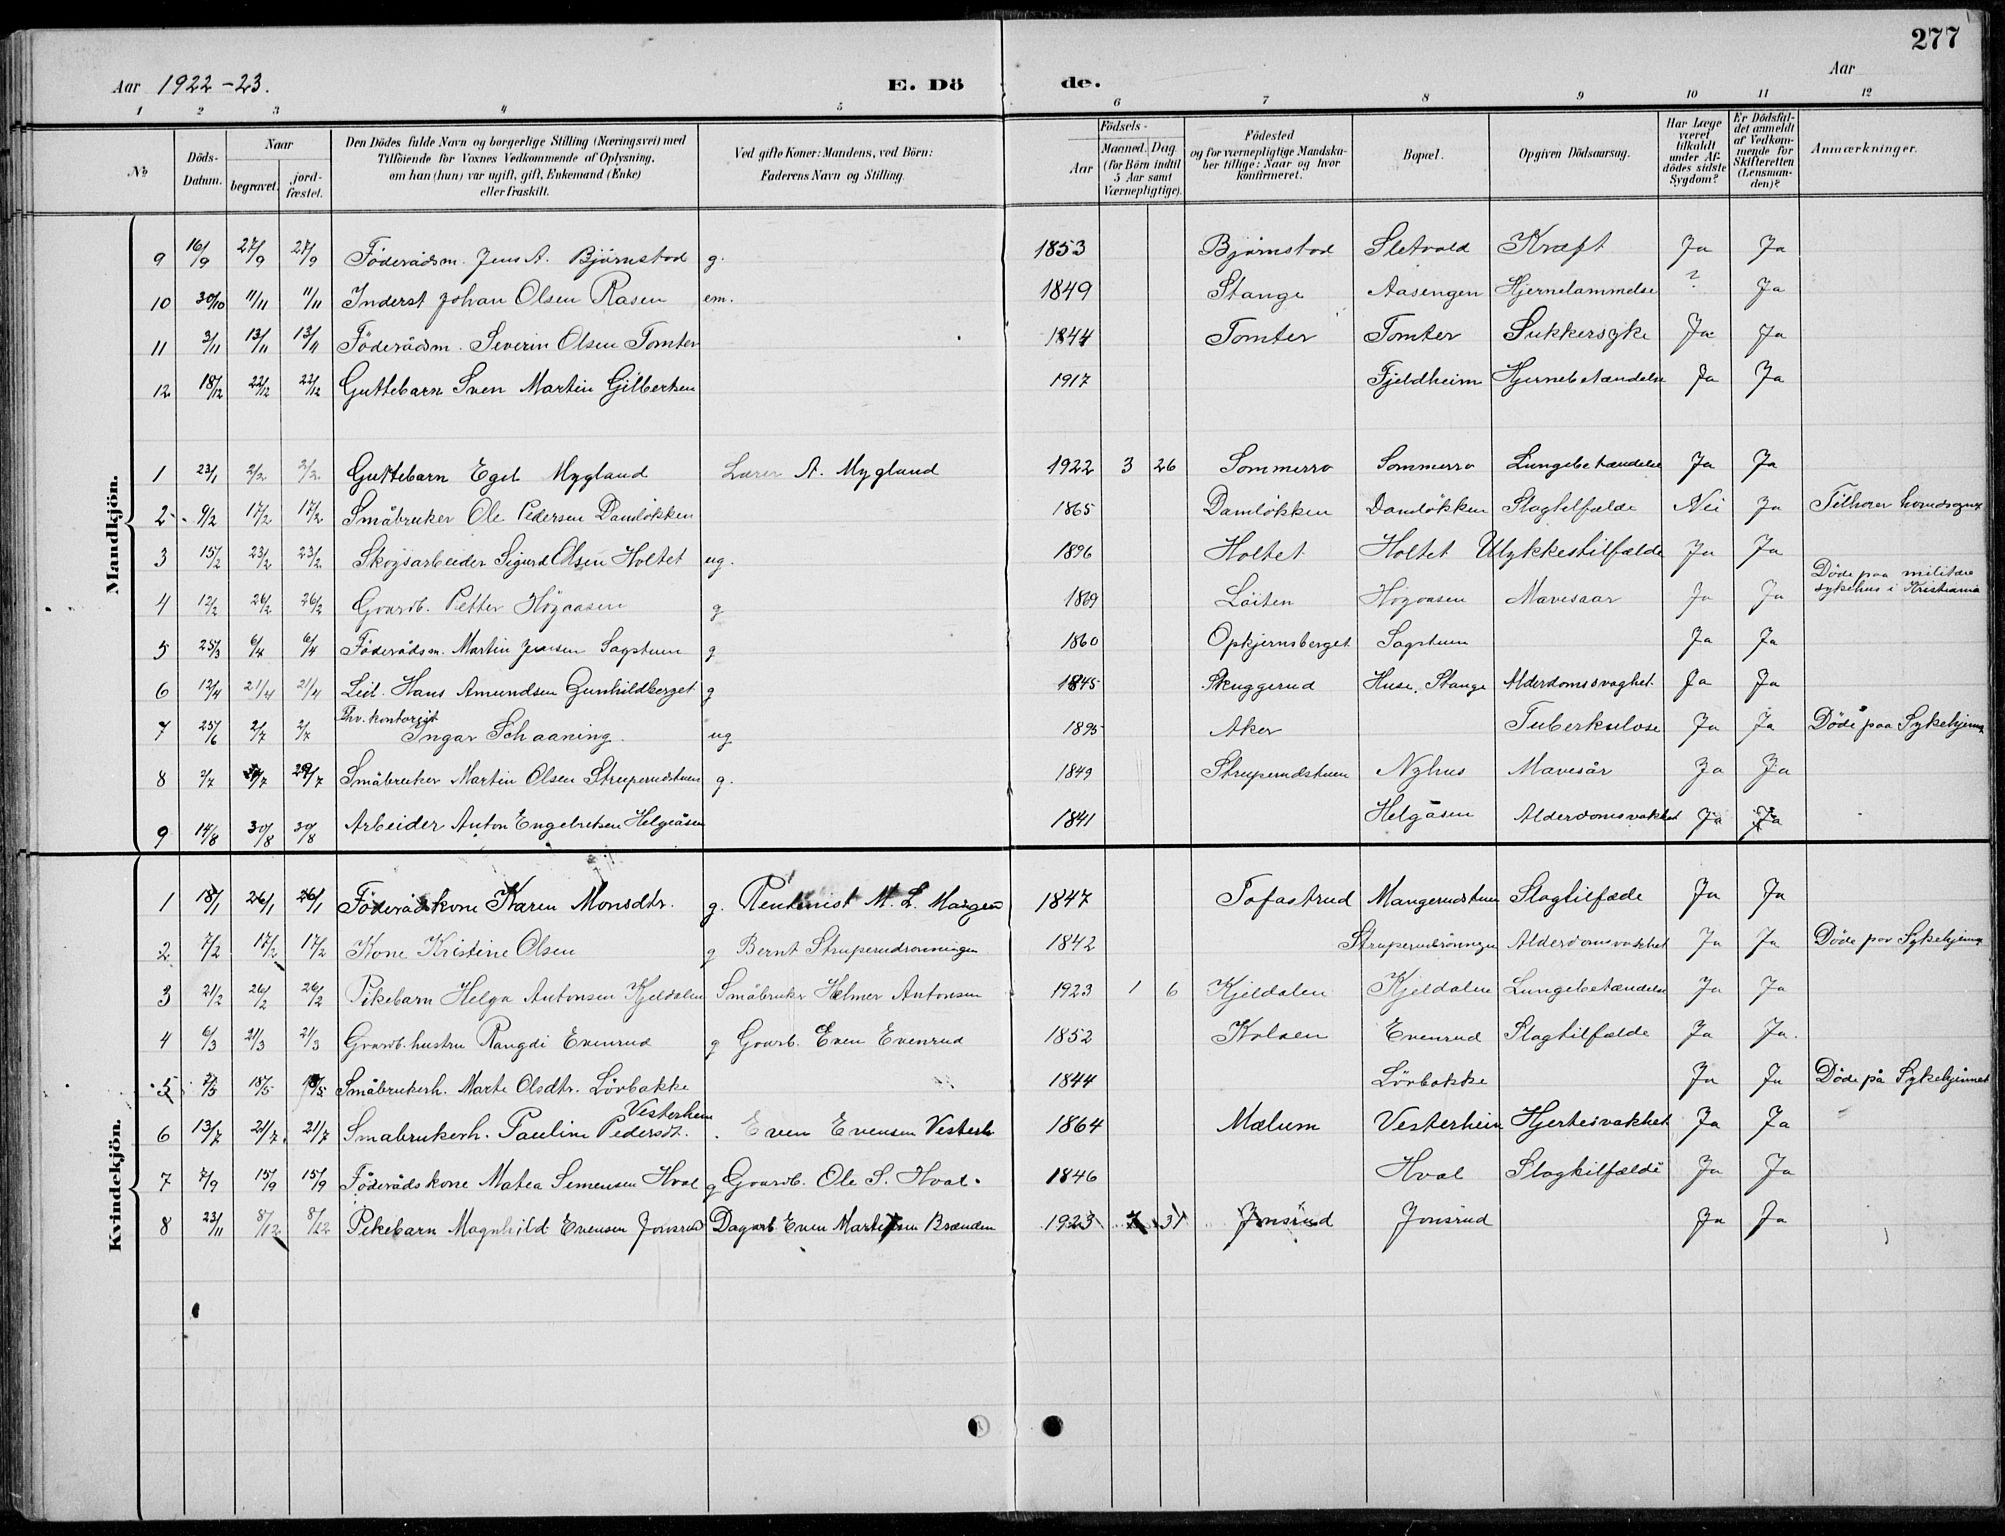 277
Aar 1922-23. E. Dö de. Aar
1 2 3 4 5 6 7 8 9 10 11 12
№
Döds-Datum.
Naar
begravet.
jord-fæstet.
Den Dödes fulde Navn og borgerlige Stilling (Næringsvei) med
Tilföiende for Voxnes Vedkommende af Oplysning,
om han (hun) var ugift, gift, Enkemand (Enke)
eller fraskilt.
Ved gifte Koner: Mandens, ved Börn:
Faderens Navn og Stilling.
Födsels-
Aar
Maaned. Dag
(for Börn indtil
5 Aar samt
Værnepligtige).
Födested
og for værnepligtige Mandska-
ber tillige: Naar og hvor
konfirmeret.
Bopæl.
Opgiven Dödsaarsag.
Har Læge
været
tilkaldt
under Af-
dödes sidste
Sygdom?
Er Dödsfal-
det anmeldt
af Vedkom-
mende for
Skifteretten
(Lensman-
den)?
Anmærkninger.
Mandkjön.
9 16/9 27/9 27/9 Föderådsm. Jens A. Björnstad g. 1853 Björnstad Sletvold Kræft Ja Ja
10 30/10 11/11 11/11 Inderst Johan Olsen Rasen em. 1849 Stange Aasengen Hjernelammelse ? Ja
11 3/11 13/11 13/11 Föderådsm. Severin Olsen Tomter 1844 Tomter Tomter Sukkersyke Ja Ja
12 18/12 22/12 22/12 Guttebarn Sven Martin Gilbertsen 1917 Fjeldheim Hjernebetændelse Ja Ja
1 23/1 2/2 2/2 Guttebarn Egil Mygland Lærer A. Mygland 1922 3 26 Sommerro Sommerro Lungebetændelse Ja Ja
2 9/2 17/2 17/2 Småbruker Ole Pedersen Damløkken 1865 Damløkken Damløkken Slagtilfælde Nei Ja Tilhører hovedsogn
3 15/2 23/2 23/2 Skogsarbeider Sigurd Olsen Holtet ug. 1896 Holtet Holtet Ulykkestilfælde Ja Ja
4 12/2 26/2 26/2 Gaardb. Petter Högaasen g 1869 Löiten Högaasen Mavesaar Ja Ja Döde paa militære
sykehus i Kristiania
5 25/3 6/4 6/4 Föderådsm. Martin Jensen Sagstuen g 1860 Opkjernsberget Sagstuen Ja Ja
6 12/4 21/4 21/4 Leil. Hans Amundsen Gunhildberget g 1845 Skuggerud Huse, Stange Alderdomssvaghet Ja Ja
7 25/6 2/7 2/7 Fhv. kontorist
Ingar Schaaning. ug 1895 Aker Tuberkulose Ja Ja Döde paa Sykehjem
8 2/7 29/7 Småbruker Martin Olsen Struperudstuen g. 1849 Struperudstuen Nyhus Mavesår Ja Ja
9 14/8 30/8 30/8 Arbeider Anton Engebretsen Helgeåsen 1841 Helgåsen Alderdomsvakhet Ja Ja
Kvindekjön.
1 18/1 26/1 26/1 Föderådskone Karen Monsdtr. g. Rentenist M. L. 1847 Tofastrud Mangerudstuen Slagtilfæde Ja Ja
2 7/2 17/2 17/2 Kone Kristine Olsen g Bernt Struperudrönningen 1842 Struperudrönningen Alderdomsvakhet Ja Ja Döde paa Sykehjem
3 21/2 26/2 26/2 Pikebarn Helga Antonsen Kjeldalen Småbruker Helmer Antonsen 1923 1 6 Kjeldalen Kjeldalen Lungebetændelse Ja Ja
4 6/3 21/3 21/3 Gaardb. hustru Rangdi Evenrud g Gaardb. Even Evenrud 1852 Kolsen Evenrud Slagtilfælde Ja Ja.
5 18/5 18/5 Småbrukerh. Marte Olsdtr. Lövbakke 1844 Lövbakke Ja Ja Döde på Sykehjemmet
6 13/7 21/7 21/7 Småbrukerh. Pauline Pedersdt. Vesterheim Even Evensen Vesterh 1864 Mælum Vesterheim Hjertesvakhet Ja Ja
7 7/9 15/9 15/9 Föderådskone Matea Simensen Hval g Gaardb. Ole S. Hval. 1846 Hval Slagtilfælde Ja Ja
8 23/11 8/12 8/12 Pikebarn Magnhild Evensen Jonsrud Dagarb. Even Martinsen Brænden 1923 7 31 Jonsrud Jonsrud Ja Ja